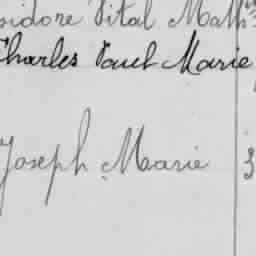 sidore Vital Math
Charles Paul Marie
Joseph Marie 3